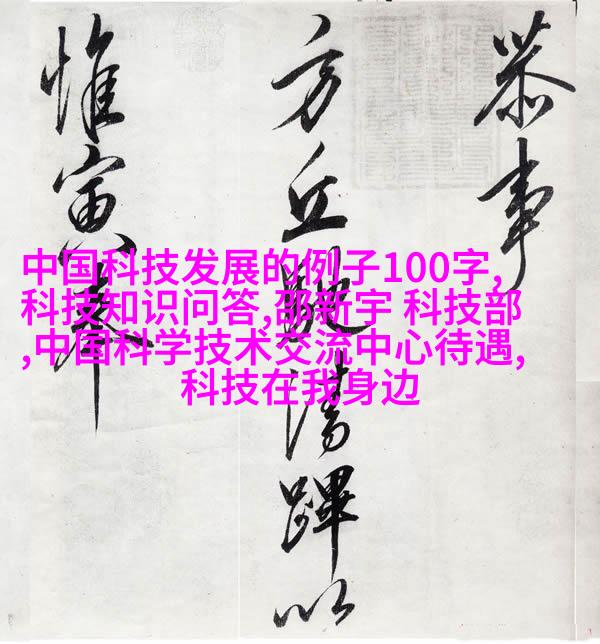 恭事
方丘清蹕以
惟寅奉
中国科技发展的例子100字,
科技知识问答,邵新宇 科技部
,中国科学技术交流中心待遇,
科技在我身边